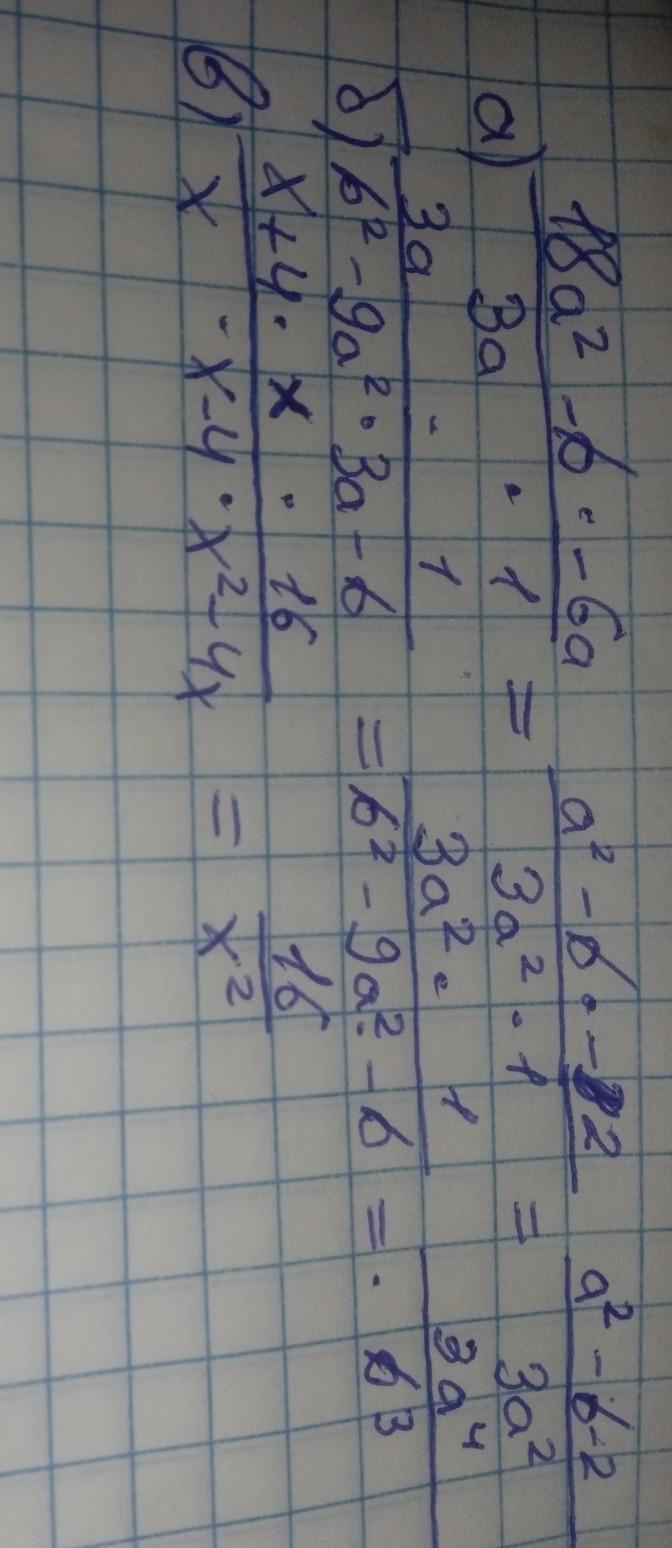 а) 18a² - b · -6a / 3a · 1 = a² - b · -2 / 3a² · 1 = a² - b · 2 / 3a²
б) 3a · 1 / b² - 9a² · 3a - b = 3a² · 1 / b² - 9a² · - b = · 3a⁴ / b³
в) x + 4 · x · 16 / x · x - 4 · x² - 4x = 16 / x²